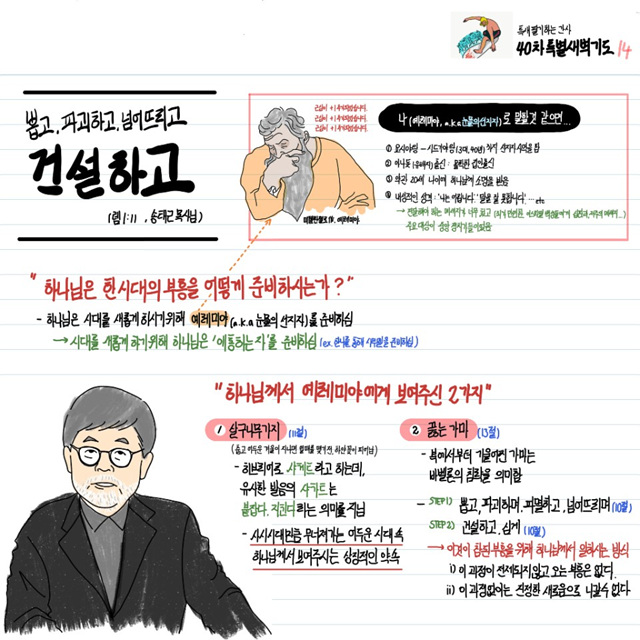 특새 필기하는 간사
40차 특별새벽기도 14
뽑고, 파괴하고, 넘어뜨리고
건설하고
(렘 1:11, 송태근 목사님)
나 (예레미야, a.k.a 눈물의 선지자)로 말할 것 같으면...
① 요시야왕 - 시드기야왕 (3대, 40년) 까지 선지자 사역을 함
② 아나돗 출신 :
③ 약관 20세 나이에 하나님께 소명을 받음
④ 내성적인 성격 : "나는 아이입니다." "말을 잘 못합니다." ... etc
미켈란젤로 IV. 예레미야.
"하나님은 한 시대의 부흥을 어떻게 준비하시는가?"
- 하나님은 시대를 새롭게 하시기 위해 예레미야 (a.k.a 눈물의 선지자)를 준비하심
→ 시대를 새롭게 하기 위해 하나님은 '애통하는 자'를 준비하심
"하나님께서 예레미야에게 보여주신 2가지"
① 살구나무가지 (11절)
(춥고 어두운 겨울이 지나면 열매를 맺기 전, 하얀 꽃이 피어남)
- 히브리어로 샤케드 라고 하는데,
유사한 발음의 샤카드는
붙잡다. 지킨다 라는 의미를 지님
- 사사시대만큼 무너져가는 어두운 시대 속
하나님께서 보여주시는 상징적인 약속
② 끓는 가마 (13절)
- 북에서부터 기울어진 가마는
바벨론의 침략을 의미함
- STEP 1) 뽑고, 파괴하며, 파멸하고, 넘어뜨리며 (10절)
STEP 2) 건설하고, 심게 (10절)
→ 이것이 참된 부흥을 위해 하나님께서 일하시는 방식
i) 이 과정이 전제되지 않고 오는 부흥은 없다.
ii) 이 과정 없이는 진정한 새로움으로 나갈 수 없다.